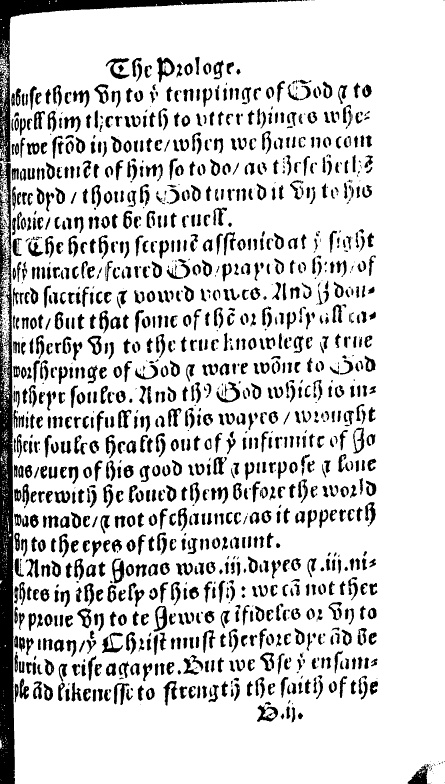 The Prologe.
abuse them vn to ẏ temptinge of God ⁊ to
cōpell him therwith to vtter thinges whe⸗
rof we stōd in doute/ when we haue no com
maundemēt of him so to do/ as these hethē
here dyd / though God turned it vn to his
glorie/ can not be but euell.
¶ The hethen scepmē asstonied at ẏ sight
of ẏ miracle/ feared God/ prayed to him/ of
fered sacrifice ⁊ vowed vowes. And I dou⸗
te not/ but that some of thē or haply all ca⸗
me therby vn to the true knowlege ⁊ true
worshepinge of God ⁊ ware wōne to God
in theyr soules. And thꝰ God which is in⸗
finite mercifull in all his wayes / wrought
their soules health out of ẏ infirmite of Jo
nas/ euen of his good will ⁊ purpose ⁊ loue
wherewith he loued them before the world
was made/ ⁊ not of chaunce/ as it appereth
vn to the eyes of the ignoraunt.
¶ And that Jonas was .iij. dayes ⁊ .iij. ni⸗
ghtes in the bely of his fish : we cā not ther
by proue vn to te Jewes ⁊ īfideles or vn to
any man/ ẏ Christ must therfore dye ād be
buried ⁊ rise agayne. But we vse ẏ ensam⸗
ple ād likenesse to strength the faith of the
B.ij.